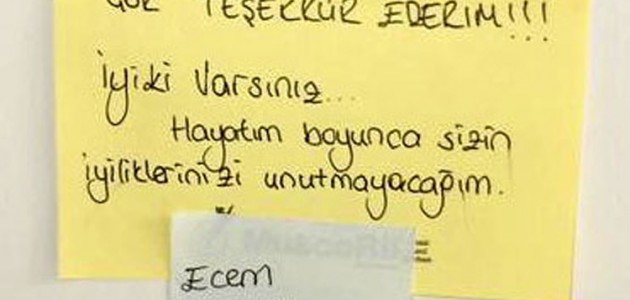 ÇOK TEŞEKKÜR EDERİM!!!
İyiki Varsınız...
Hayatım boyunca sizin
iyiliklerinizi unutmayacağım.
Ecem